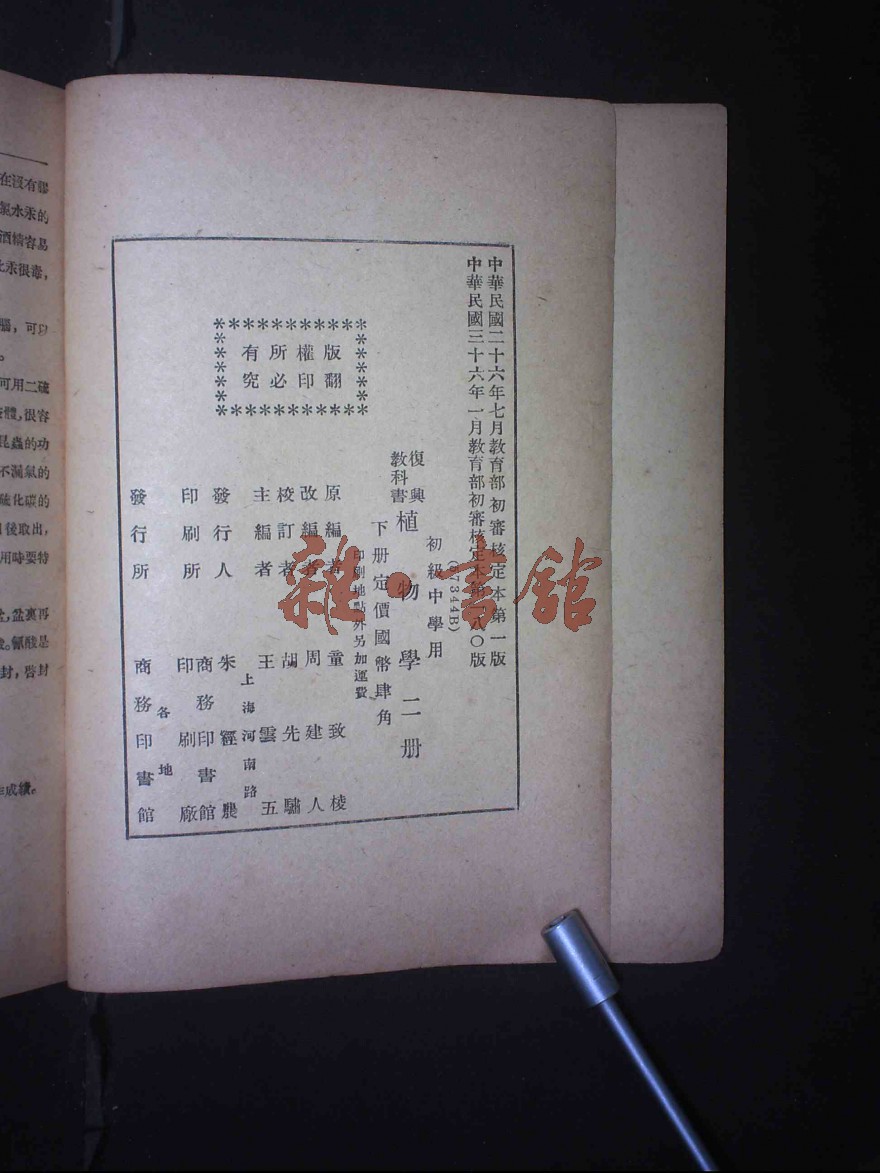 中華民國二十六年七月教育部初審核定本第一版
中華民國三十六年一月教育部初審核定本第一八〇版
初級中學用
(57344B)
復興
教科書
植物學二册
下册定價國幣肆角
印刷地點外另加運費
版權所有
翻印必究
原編者 童致棱
改編者 周建人
校訂者 胡先驌
主編者 王雲五
上海河南路
發行人 朱經農
印刷所 商務印書館
印刷廠
各地
發行所 商務印書館
雜·書館
在沒有膠
氯水汞的
酒精容易
汞很毒，
腦，可以
可用二硫
體，很容
昆蟲的功
不漏氣的
硫化碳的
後取出，
用時要特
盆裏再
氰酸是
封，啓封
成績。